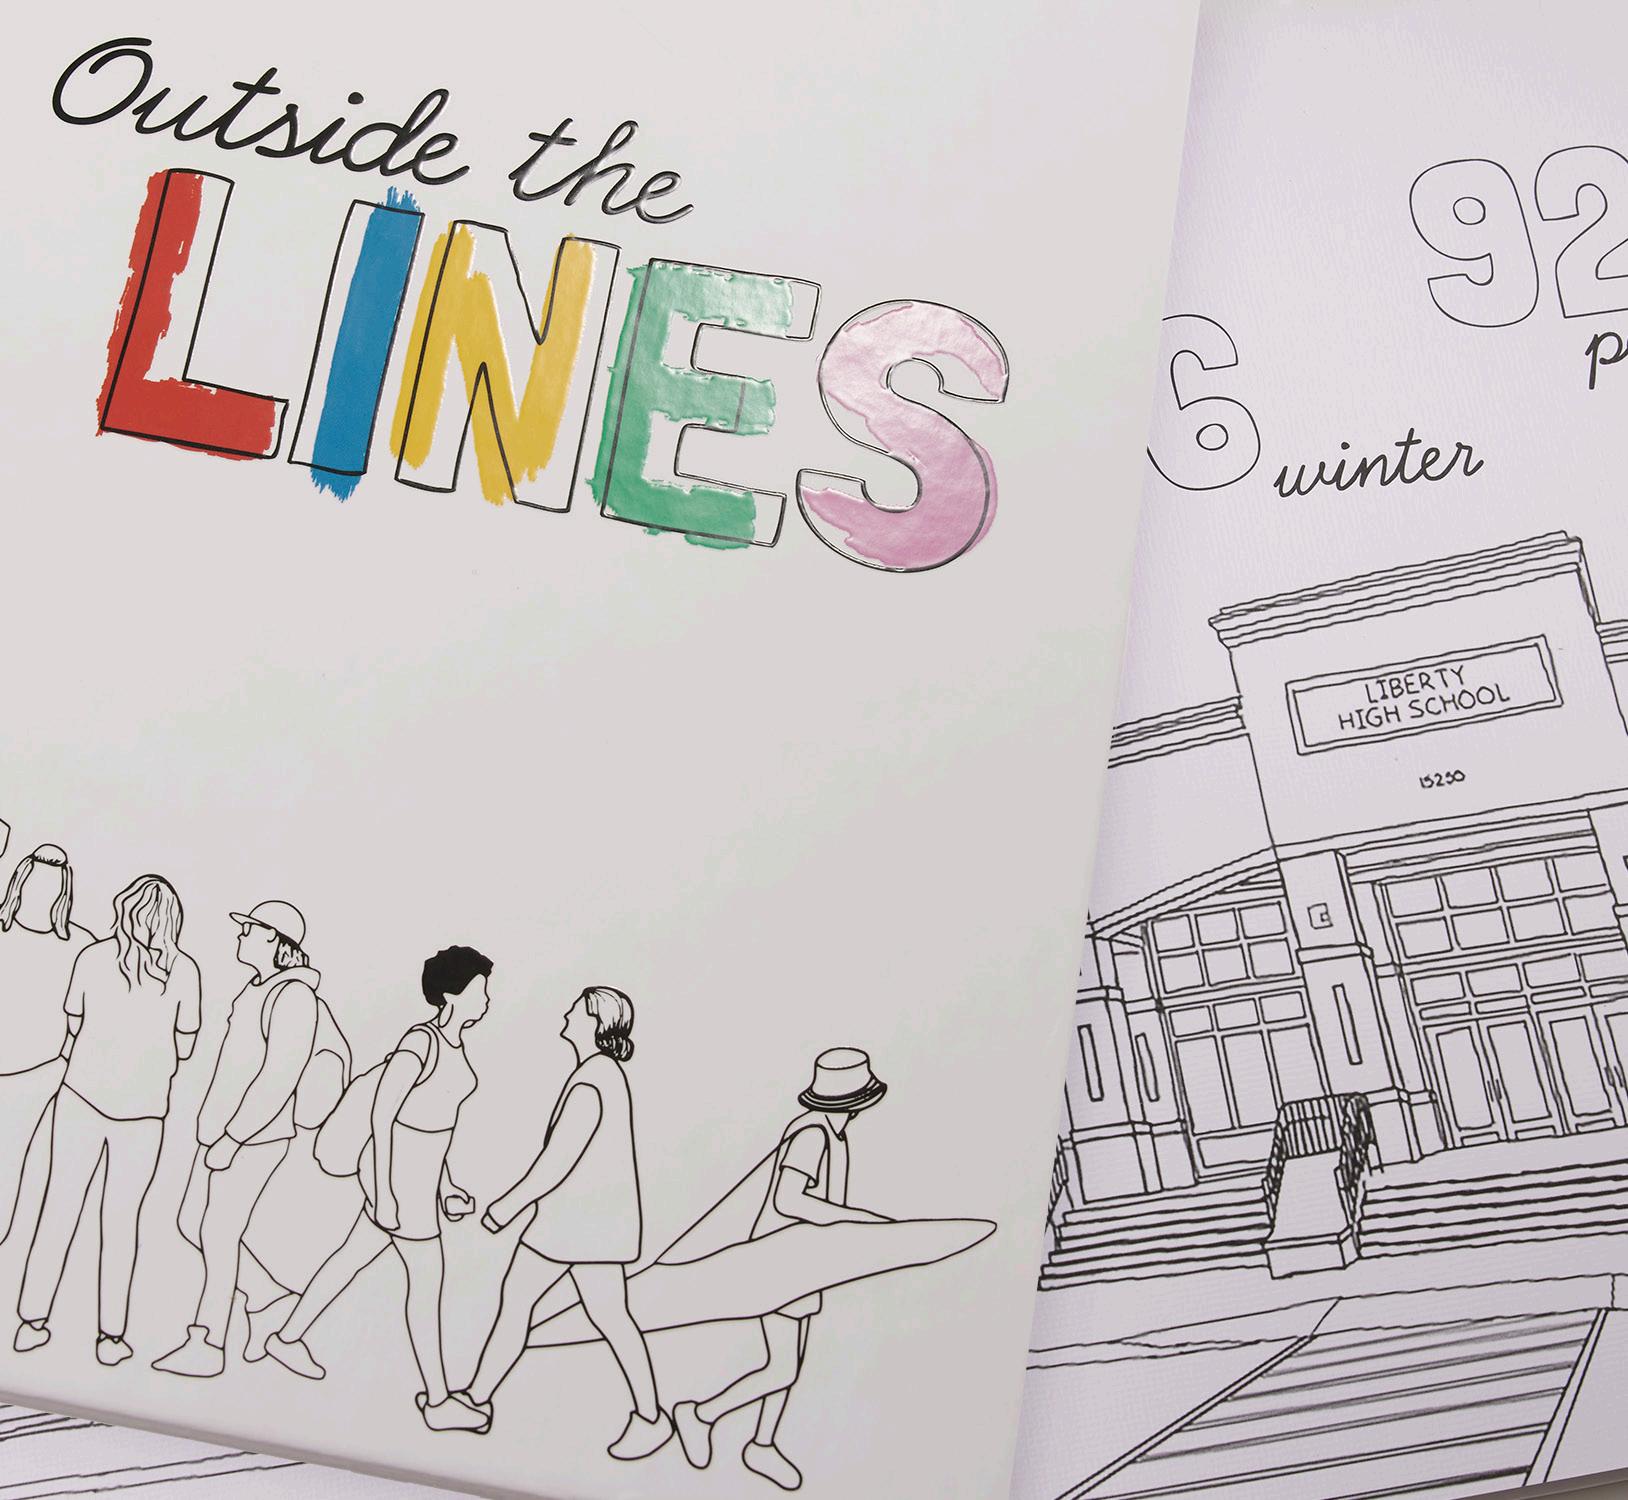 Outside the
LINES
92
6 winter
LIBERTY
HIGH SCHOOL
15250